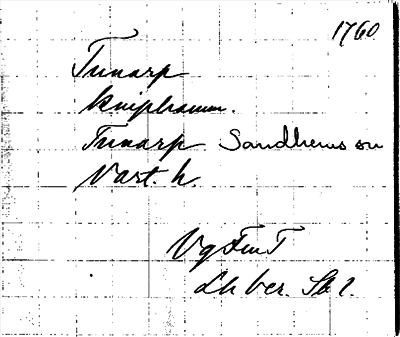 1760
Tunarp
Kniphamm.
Tunarp Sandhems sn
Vart. h.
Vg FmT
Lh ber. Sb 1.